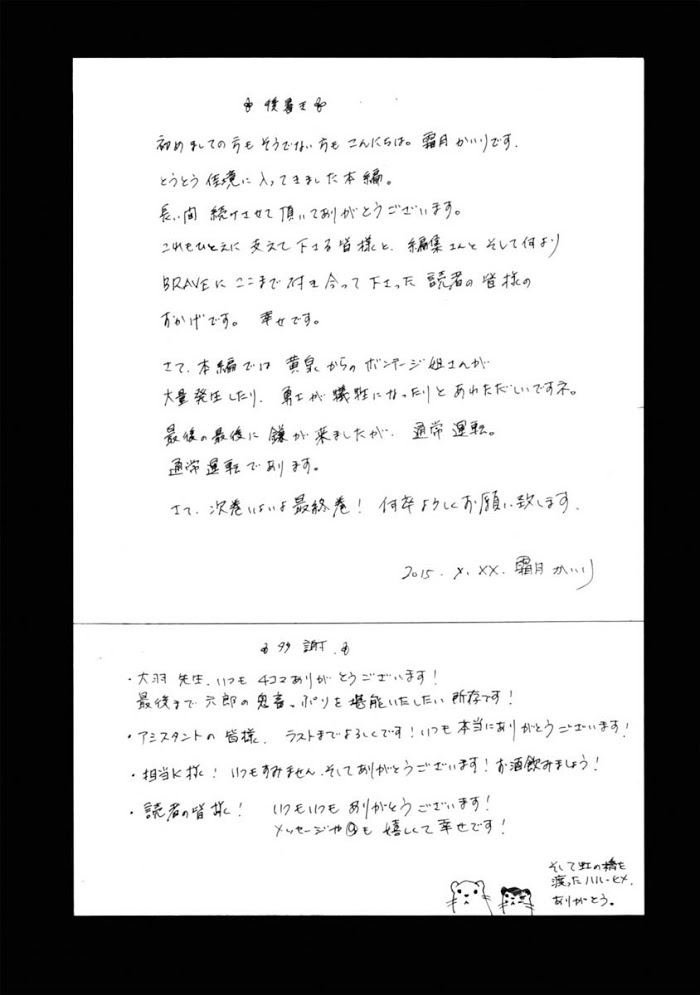 後書き
初めましての方もそうでない方もこんにちは。霜月かいりです.
とうとう佳境に入ってきました本編。
長い間 続けさせて頂いてありがとうございます。
これもひとえに 支えて下さる皆様と、編集さんと そして何より
BRAVEに ここまで 付き合って下さった 読者の皆様の
おかげです。 幸せです。
さて、本編では 黄泉からの ボンテージ姐さんが
大量発生したり、勇士が犠牲になったりと あわただしいですネ。
最後の最後に 鎌が来ましたが、通常運転。
通常運転であります。
さて、次巻いよいよ最終巻! 何卒よろしくお願い致します.
2015. X. XX. 霜月かいり
多謝
・大羽先生、いつも 4コマありがとうございます!
最後まで 六郎の鬼畜っぷりを堪能いたしたい所存です!
・アシスタントの皆様、 ラストまでよろしくです!いつも本当にありがとうございます!
・担当K様! いつもすみません、そしてありがとうございます!お酒飲みましょう!
・読者の皆様! いつもいつも ありがとうございます!
メッセージや も 嬉しくて幸せです!
そして虹の橋を
渡ったハル・ヒメ、
ありがとう。